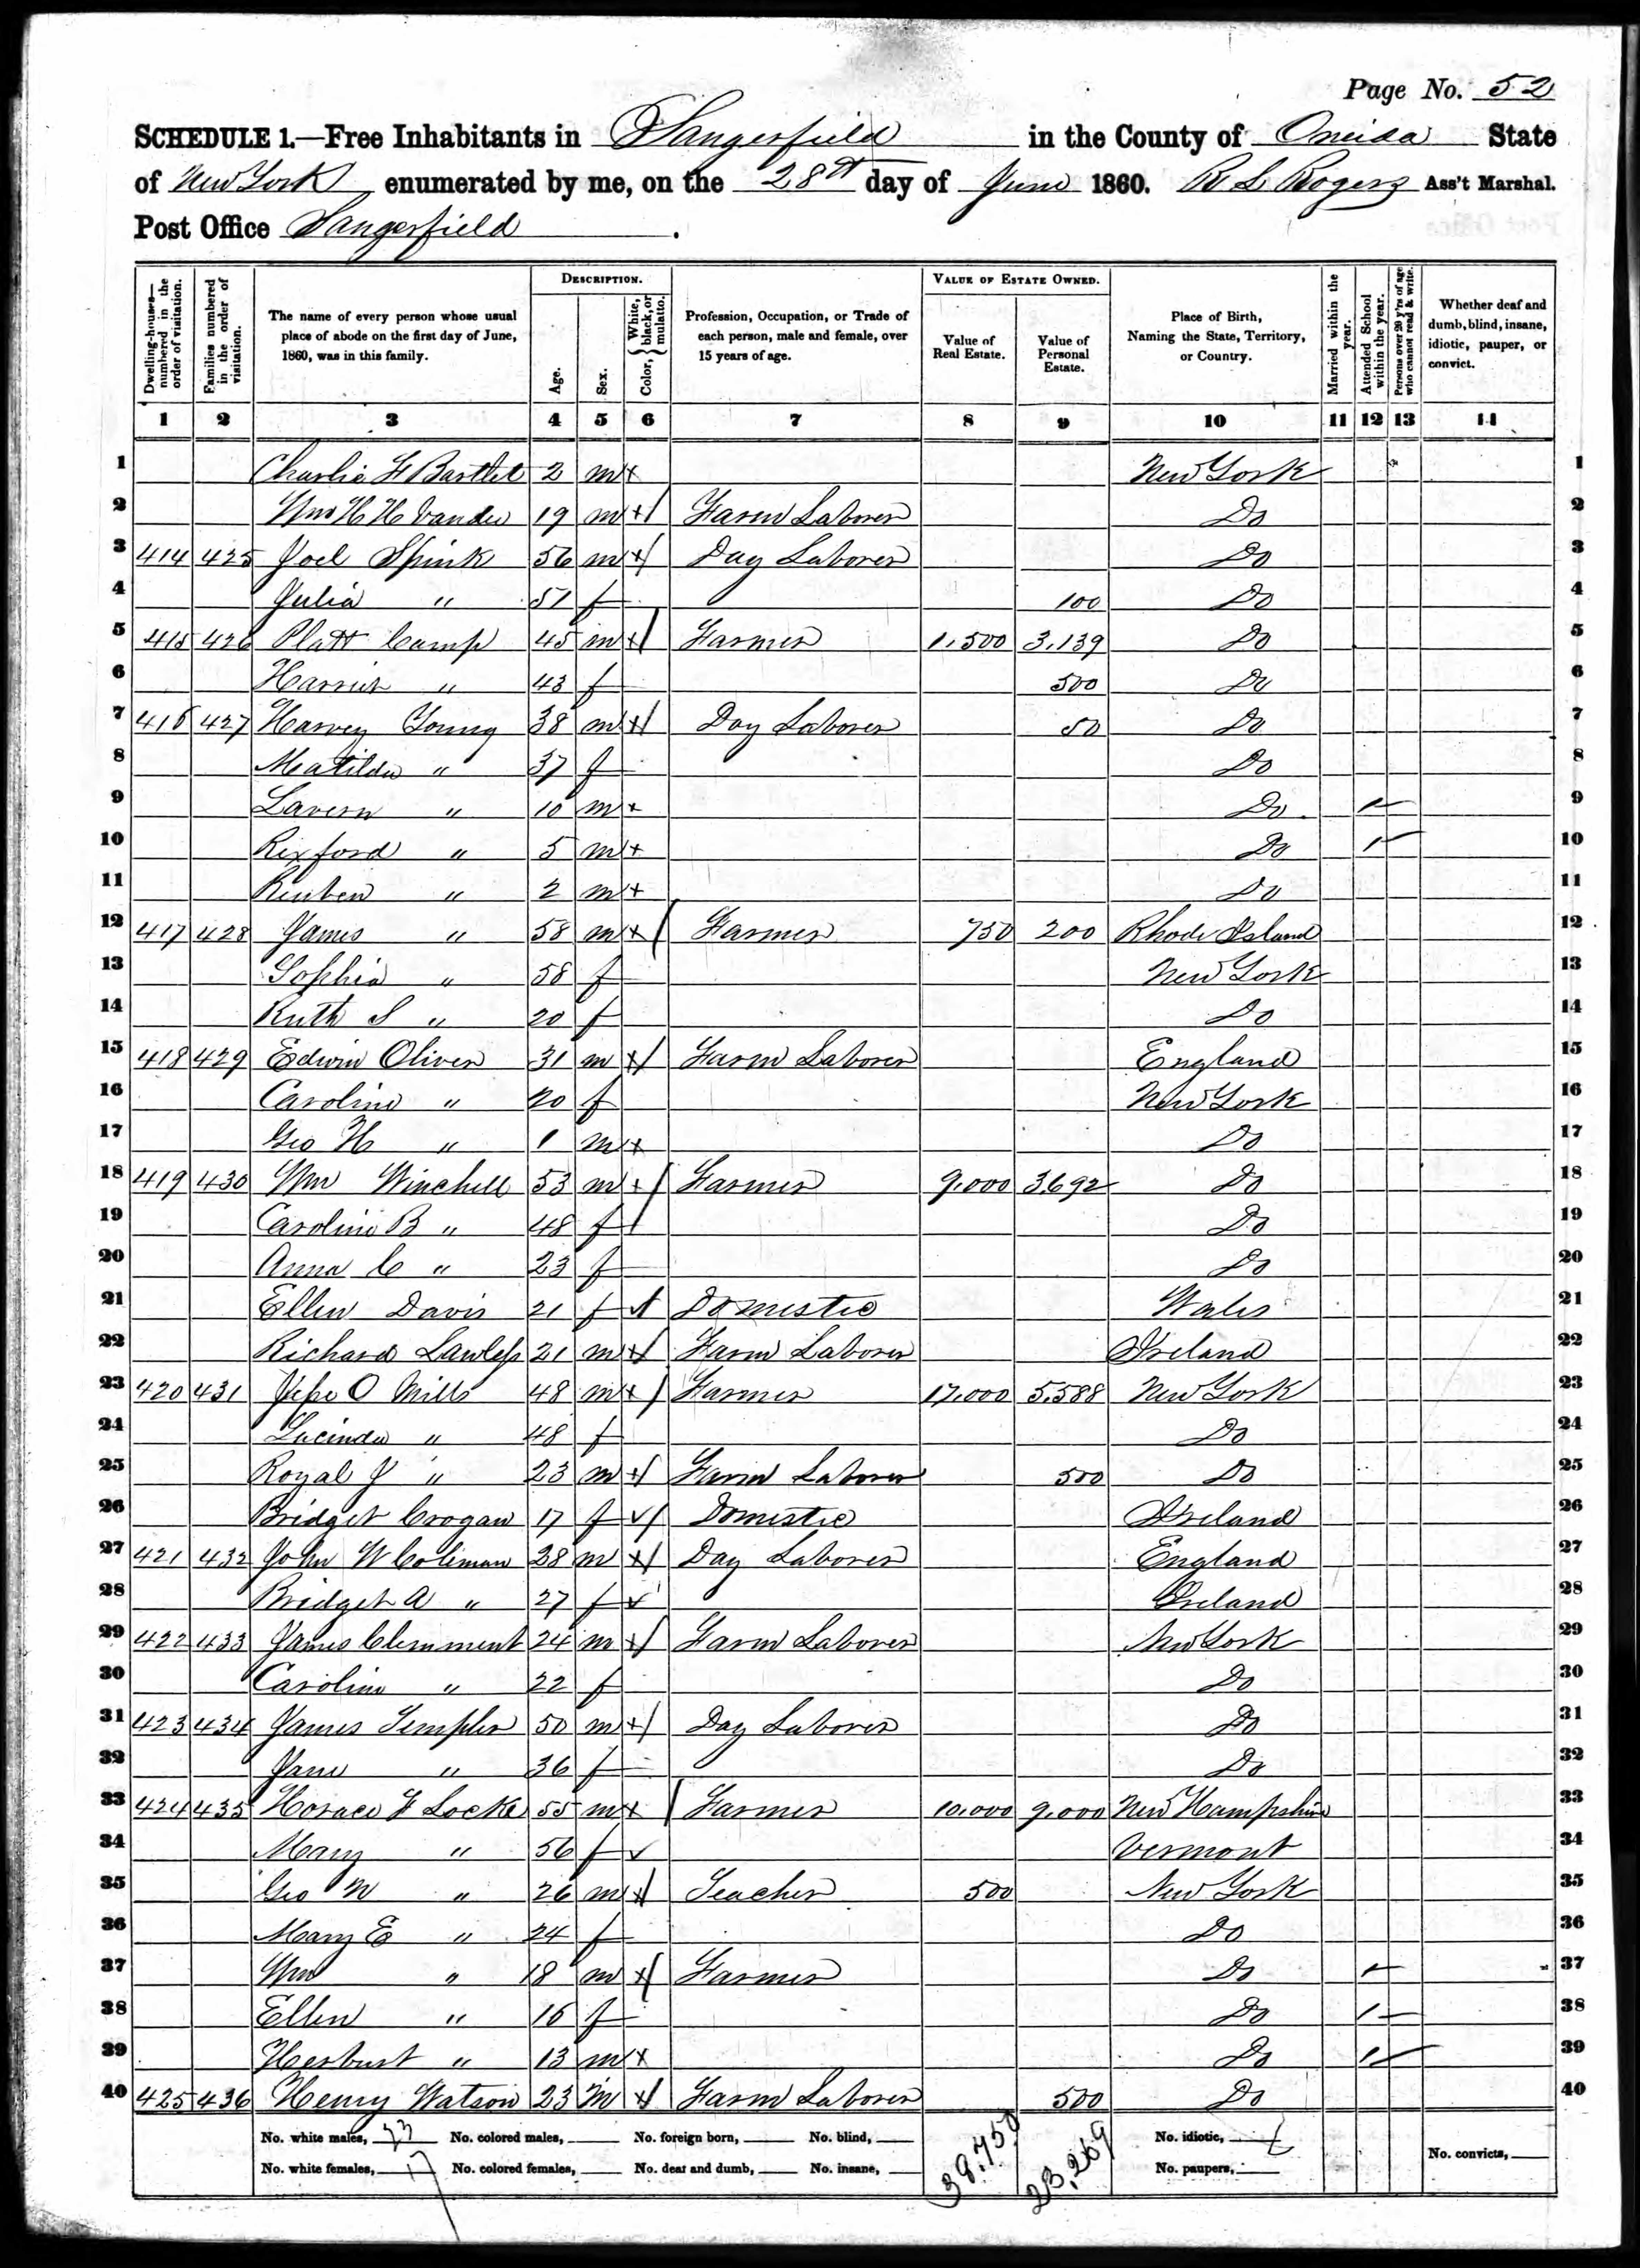 Page No. 52
SCHEDULE 1.—Free Inhabitants in Sangerfield in the County of Oneida State
of New York enumerated by me, on the 28th day of June 1860. R L Rogers Ass't Marshal.
Post Office Sangerfield .
DESCRIPTION. VALUE OF ESTATE OWNED.
Dwelling-houses—numbered in the order of visitation. Families numbered in the order of visitation. The name of every person whose usual place of abode on the first day of June, 1860, was in this family. Age. Sex. Color, { White, black, or mulatto. Profession, Occupation, or Trade of each person, male and female, over 15 years of age. Value of Real Estate. Value of Personal Estate. Place of Birth, Naming the State, Territory, or Country. Married within the year. Attended School within the year. Persons over 20 y'rs of age who cannot read & write. Whether deaf and dumb, blind, insane, idiotic, pauper, or convict.
1 2 3 4 5 6 7 8 9 10 11 12 13 14
1 Charlie F Bartlet 2 m New York 1
2 Wm H H 19 m Farm Laborer Do 2
3 414 425 Joel Spink 56 m Day Laborer Do 3
4 Julia " 51 f 100 Do 4
5 415 426 Platt Camp 45 m Farmer 1.500 3.139 Do 5
6 Harriet " 43 f 500 Do 6
7 416 427 Harvey Young 38 m Day Laborer 50 Do 7
8 Matilda " 37 f Do 8
9 Lavern " 10 m Do 9
10 Rixford " 5 m Do 10
11 Reuben " 2 m Do 11
12 417 428 James " 58 m Farmer 750 200 Rhode Island 12
13 Sophia " 58 f New York 13
14 Ruth S " 20 f Do 14
15 418 429 Edwin Oliver 31 m Farm Laborer England 15
16 Caroline " 20 f New York 16
17 Geo H " 1 m Do 17
18 419 430 Wm Winchell 53 m Farmer 9.000 3.692 Do 18
19 Caroline B " 48 f Do 19
20 Anna C " 23 f Do 20
21 Ellen Davis 21 f Domestic Wales 21
22 Richard Lawless 21 m Farm Laborer Ireland 22
23 420 431 Jesse O Mills 48 m Farmer 17.000 5.588 New York 23
24 Lucinda " 48 f Do 24
25 Royal J " 23 m Farm Laborer 500 Do 25
26 Bridget Crogan 17 f Domestic Ireland 26
27 421 432 John W Coleman 28 m Day Laborer England 27
28 Bridget A " 27 f Ireland 28
29 422 433 James Clemment 24 m Farm Laborer New York 29
30 Caroline " 22 f Do 30
31 423 434 James Templer 50 m Day Laborer Do 31
32 Jane " 36 f Do 32
33 424 435 Horace F Locke 55 m Farmer 10.000 9.000 New Hampshire 33
34 Mary " 56 f Vermont 34
35 Geo N " 26 m Teacher 500 New York 35
36 Mary E " 24 f Do 36
37 Wm " 18 m Farmer Do 37
38 Ellen " 16 f Do 38
39 Herburt " 13 m Do 39
40 425 436 Henry Watson 23 M Farm Laborer 500 Do 40
No. white males, 23 No. colored males, No. foreign born, No. blind, 38.750 23,269 No. idiotic,
No. white females, 17 No. colored females, No. deaf and dumb, No. insane, No. paupers, No. convicts,